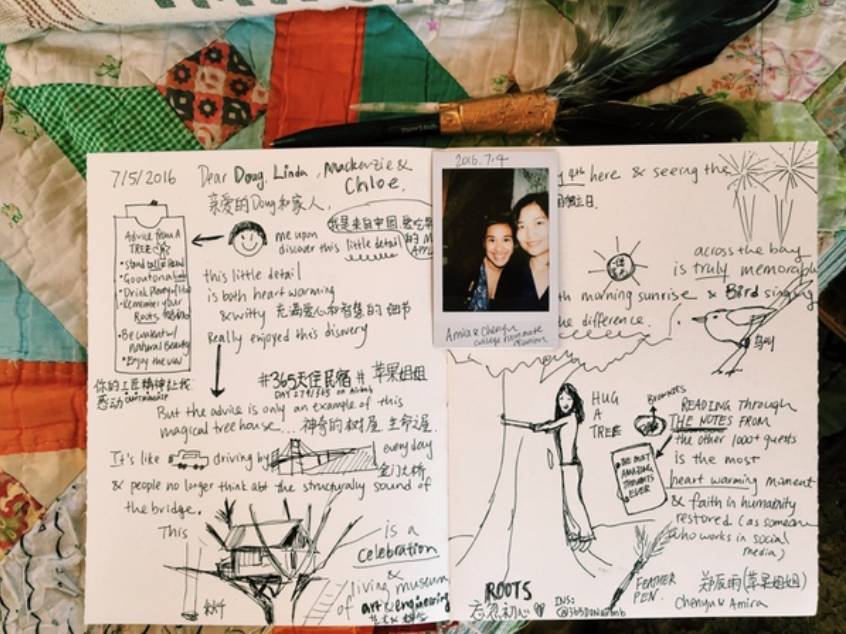 7/5/2016
Dear Doug, Linda, Mackenzie &
Chloe,
亲爱的Doug和家人,
我是来自中国
Advice from A
TREE
• Stand tall &
• Go out on a limb
• Drink Plenty of
• Remember your
Roots
• Be content w/
natural Beauty
• Enjoy the view
me upon
discover this little detail
this little detail
is both heart warming
& witty 充满爱心和智慧的细节
Really enjoyed this disovery
你的工匠精神让我
感动
#365天住民宿#苹果姐姐
DAY 279/365 on Airbnb
But the advice is only an example of this
magical tree house... 神奇的树屋 生命之屋.
It's like driving by everyday
金门大桥
& people no longer think abt the structurally sound of
the bridge.
This
is a
celebration
&
living museum
of art & engineering
2016.7.4
Amira & Chenyu
college roommate
reunion
4th here & seeing the
across the bay
is truly memorable
morning sunrise & Bird singing
the difference.
HUG
A
TREE
BROWNIES
THE MOST
AMAZING
THOUGHTS
EVER
READING through
THE NOTES FROM
the other 1000+ guests
is the most
heart warming moment
& faith in humanity
restored (as someone
who works in social
media)
FEATHER
PEN.
ROOTS
初心
INS:
@365DONairbnb
郑辰雨(苹果姐姐)
Chenyu & Amira